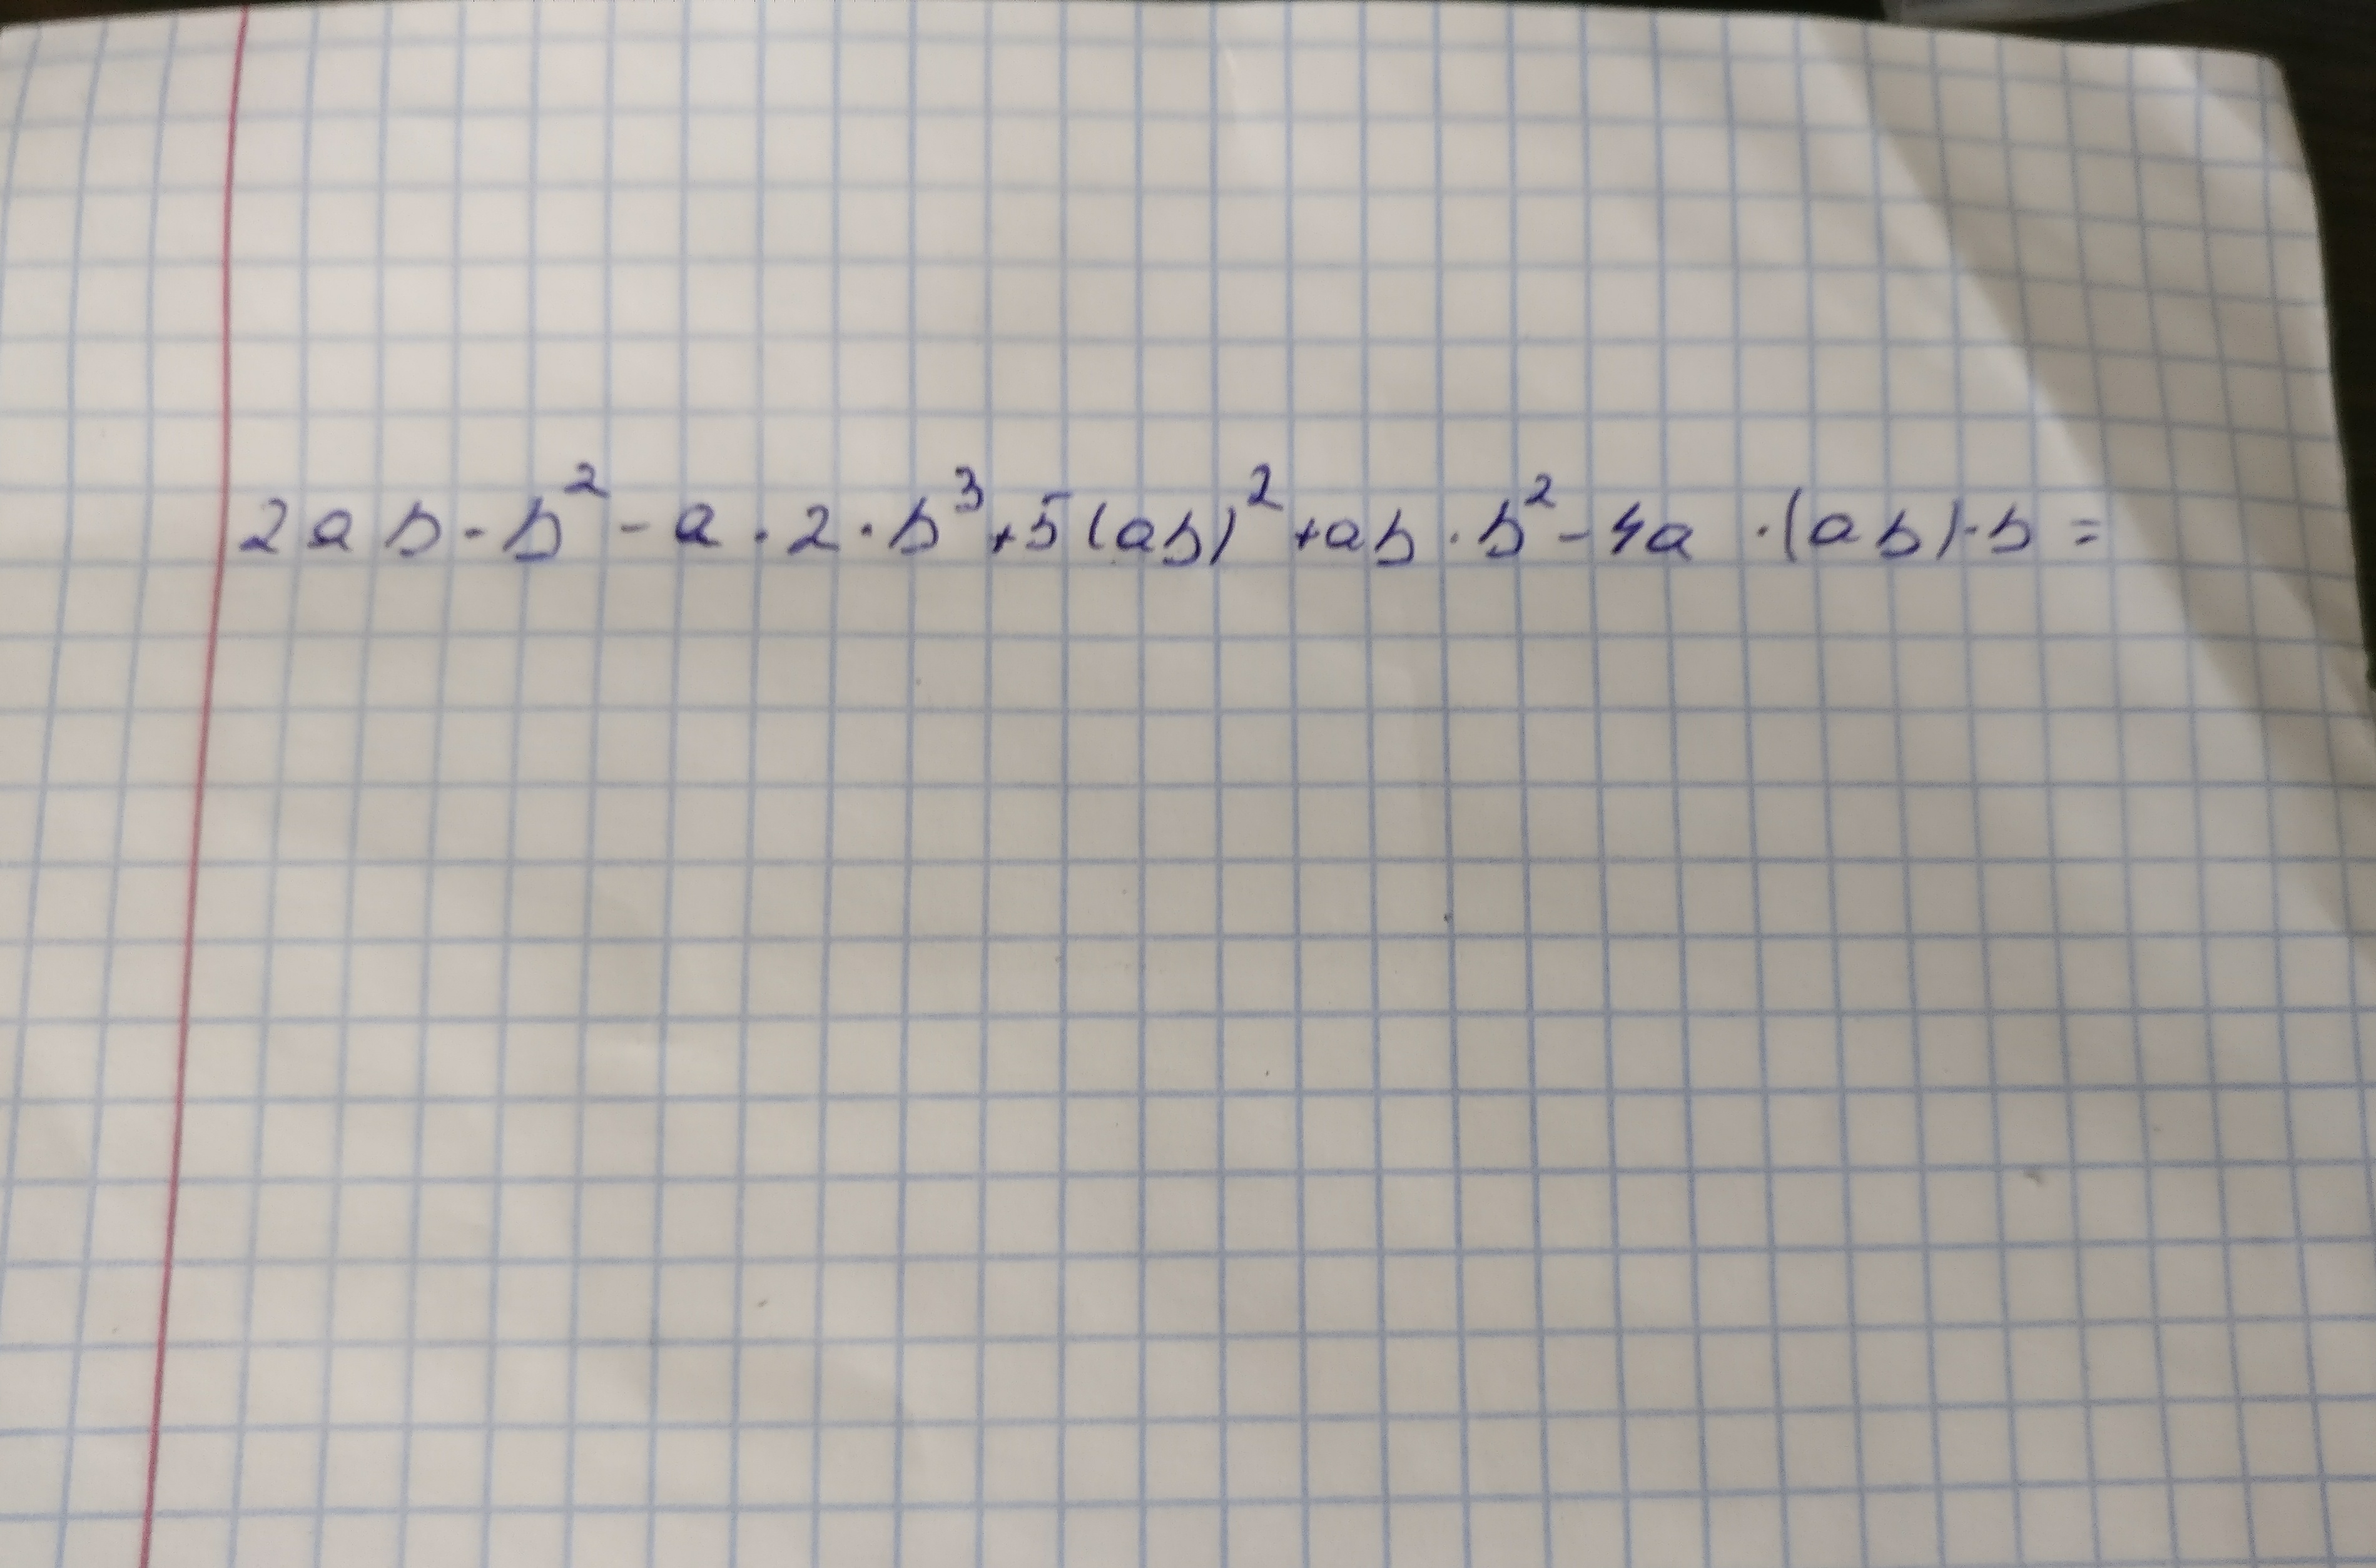 2ab·b²-a·2·b³+5(ab)²+ab·b²-4a·(ab)·b=